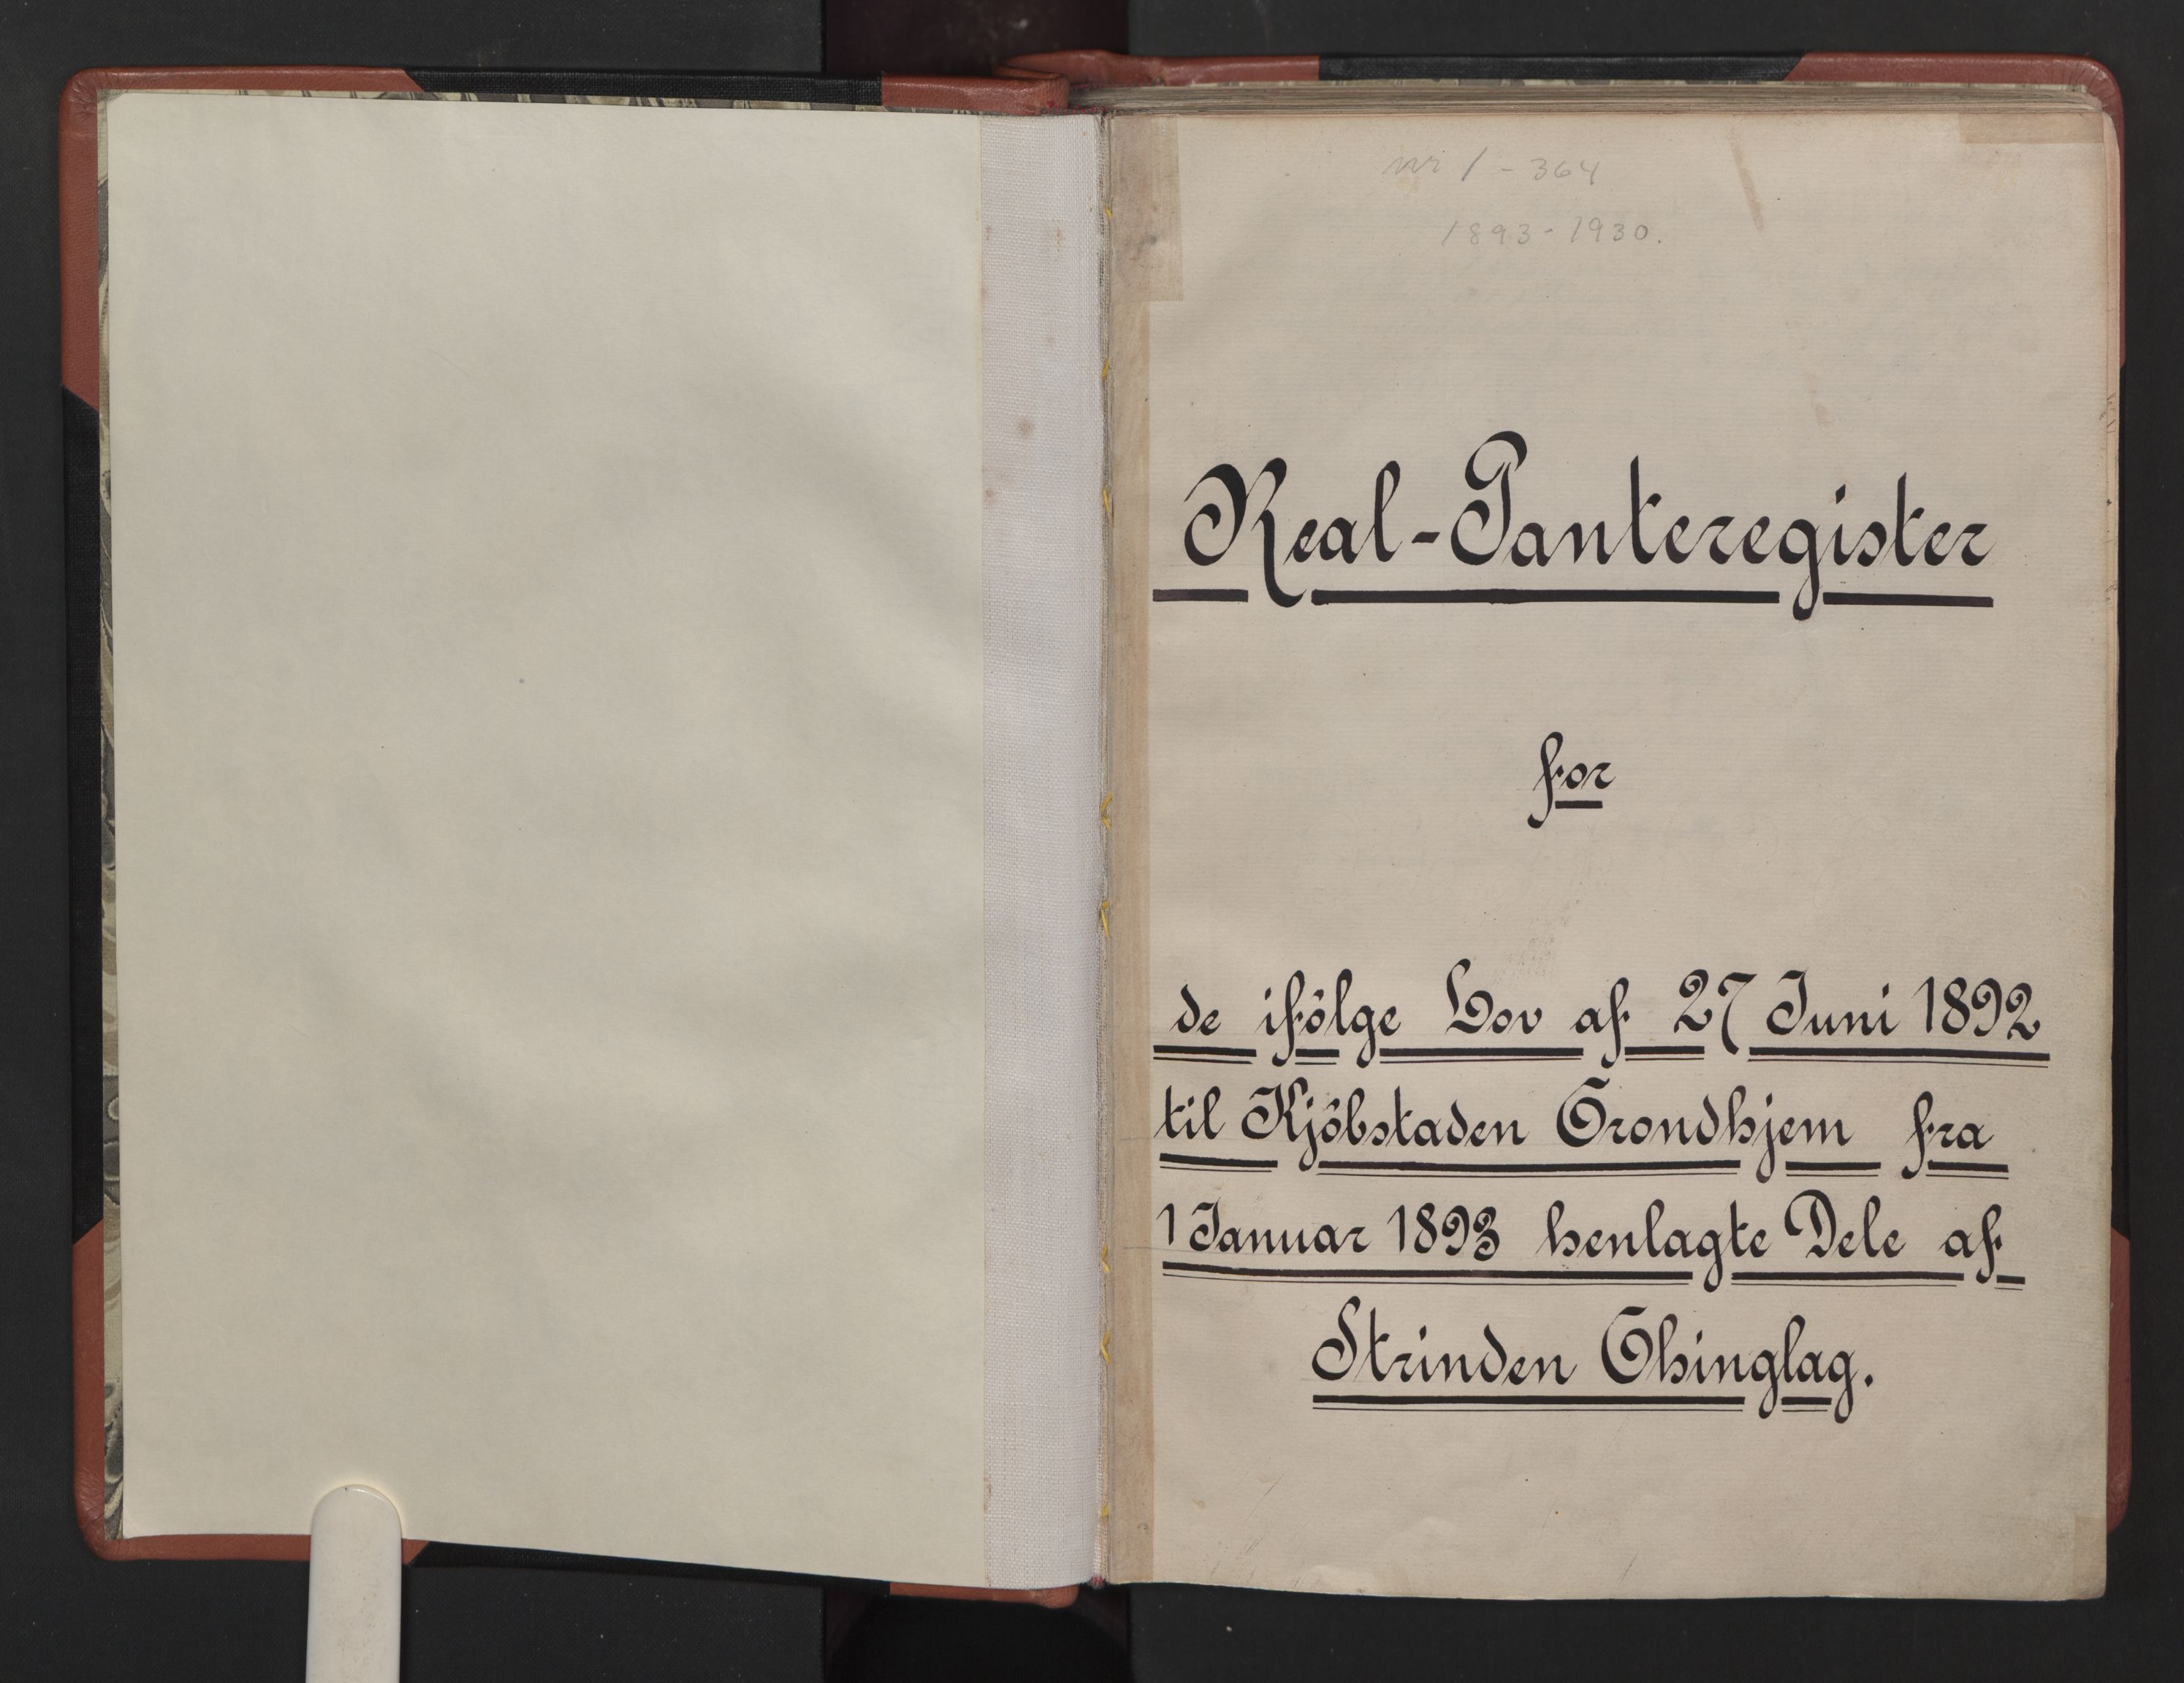 nr 1 - 364
1893 - 1930.
Real-Panteregister
for
de ifölge Lov af 27 Juni 1892
til Kjöbstaden Trondhjem fra
1 Januar 1893 henlagte Dele af
Strinden Thinglag.